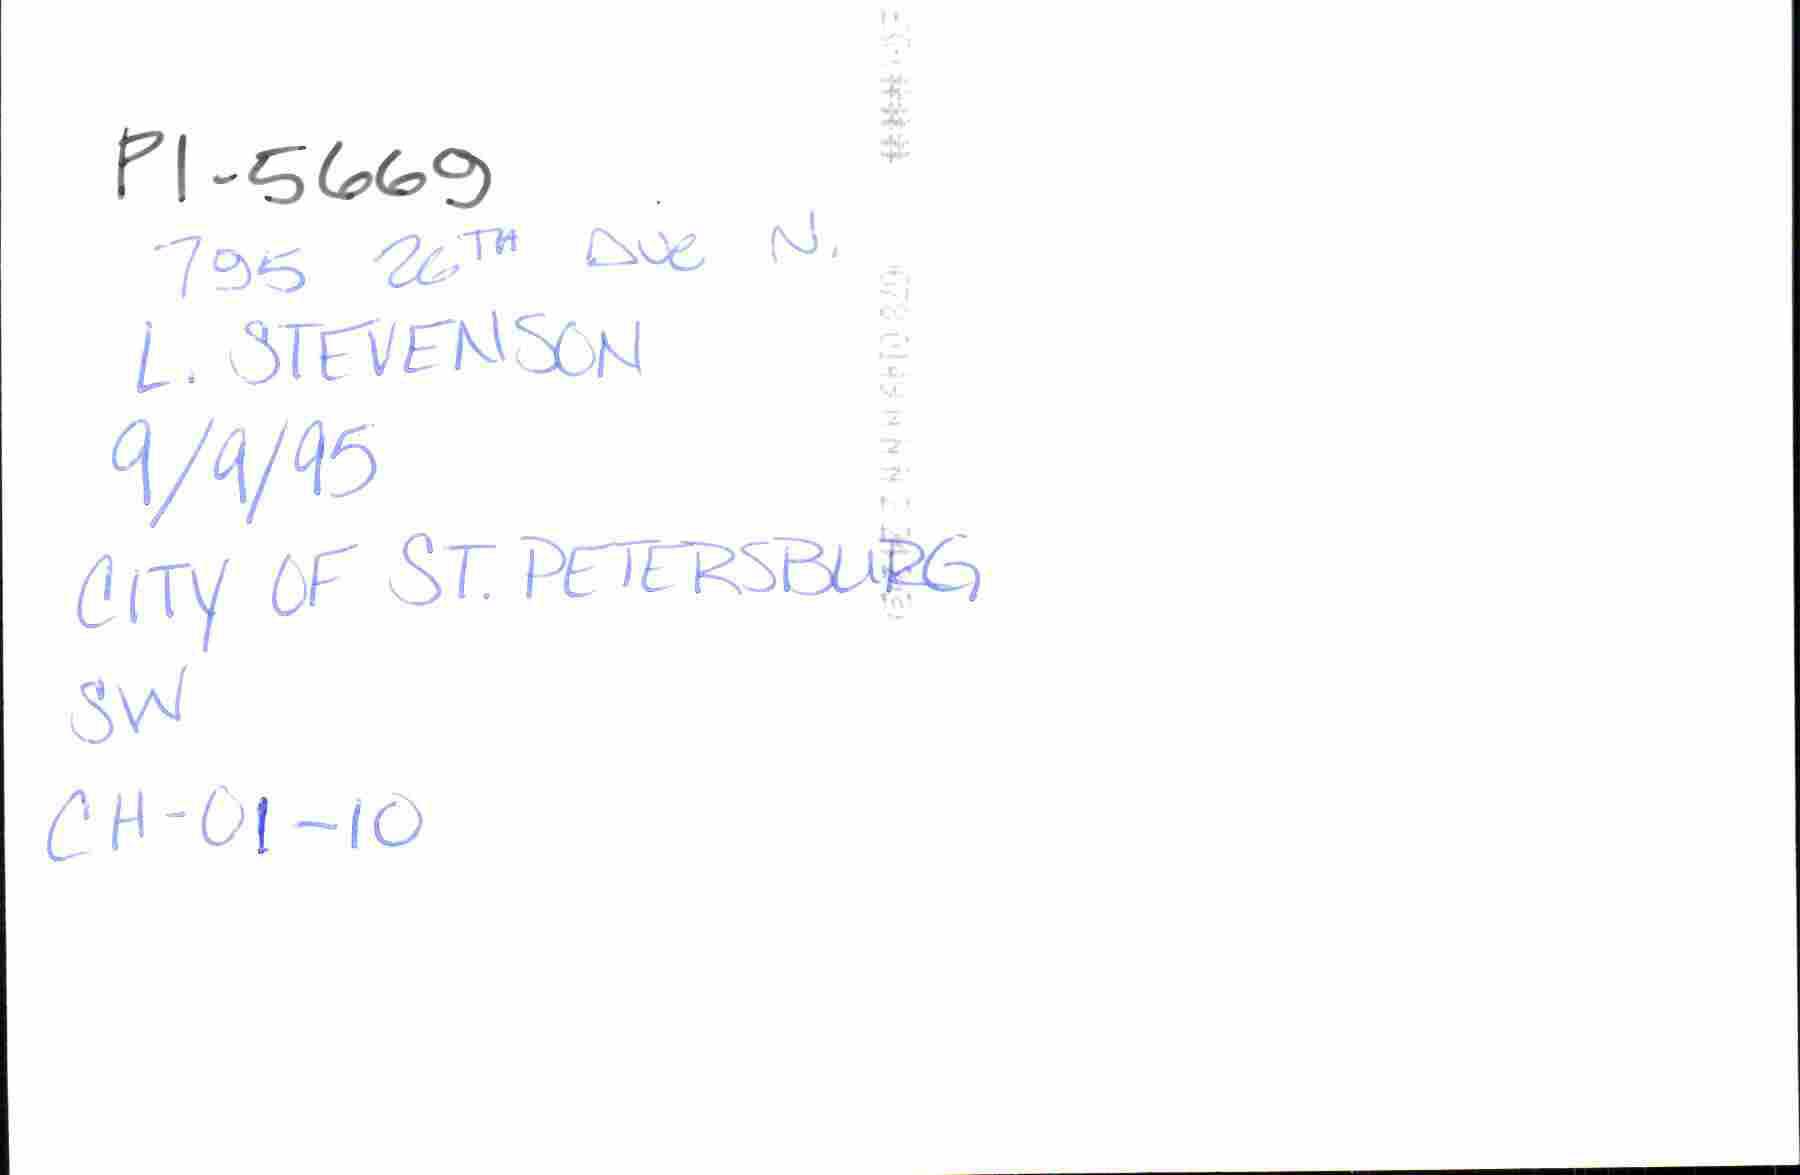 PI-5669
795 26TH Ave N.
L. STEVENSON
9/9/95
CITY OF ST. PETERSBURG
SW
CH-01-10